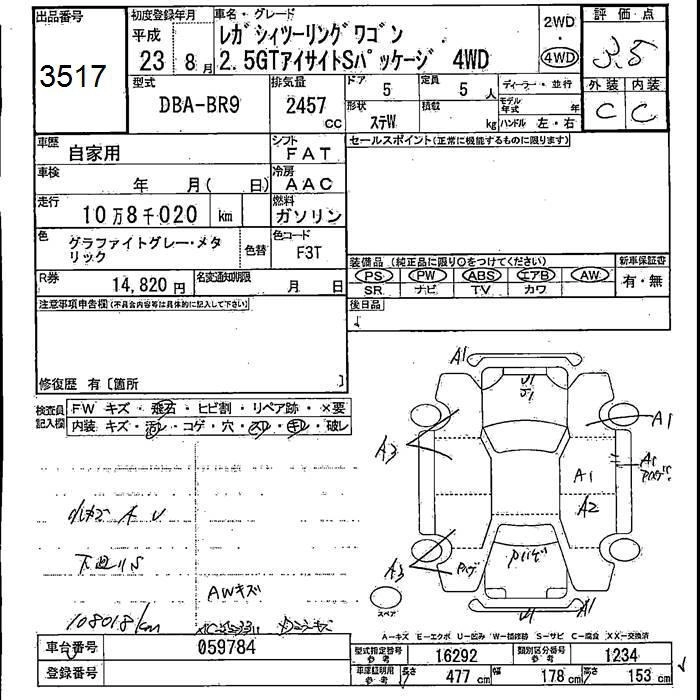 出品番号
3517
初度登録年月
平成
23 8月
車名・グレード
レガシィツーリングワゴン
2.5GTアイサイトSパッケージ 4WD
2WD
・
4WD
評価・点
3.5
外装 内装
C C
型式
DBA-BR9
排気量
2457
cc
ドア
5
定員
5
人
ディーラー・並行
形状
ステW
積載
kg
モデル年式
年
ハンドル 左・右
車歴
自家用
シフト
FAT
セールスポイント(正常に機能するものに限ります)
車検
年 月( 日)
冷房
AAC
走行
10万8千020 km
燃料
ガソリン
色
グラファイトグレー・メタ
リック
色替
色コード
F3T
装備品(純正品に限り○をつけてください)
PS PW ABS エアB AW
SR ナビ TV カワ
新車保証書
有・無
R券
14,820円
名変通知期限
月 日
後日品
注意事項申告欄(不具合内容等は具体的に記入して下さい)
修復歴 有〔箇所 〕
検査員
記入欄
FW キズ・飛石・ヒビ割・リペア跡・×要
内装 キズ・汚レ・コゲ・穴・スレ・キレ・破レ
A1
A1
A3
A1
A1
A2
A3
A1
下廻りS
AWキズ
108018km
スペア
A-キズ E-エクボ U-凹み W-補修跡 S-サビ C-腐食 XX-交換済
車台番号
059784
登録番号
型式指定番号
参考
16292
類別区分番号
参考
1234
車庫証明用
参考
長さ
477 cm
幅
178 cm
高さ
153 cm